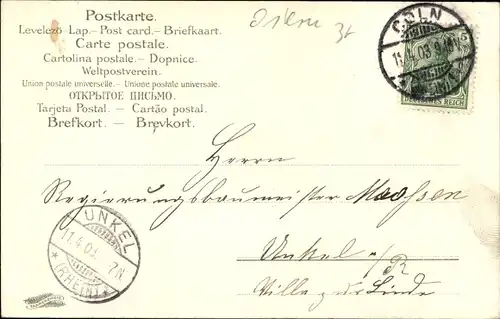 Postkarte.
Levelező-Lap. - Post card. - Briefkaart.
Carte postale.
Cartolina postale. - Dopnice.
Weltpostverein.
Union postale universelle. - Unione postale universale.
ОТКРЫТОЕ ПИСЬМО.
Tarjeta Postal. - Cartão postal.
Brefkort. - Brevkort.
Ostern
CÖLN
11.4.03
DEUTSCHES REICH
Herrn
Regierungsbaumeister Maassen
Unkel a/R
Villa zur Linde
UNKEL
11.4.03 7-8N
* (RHEIN) *